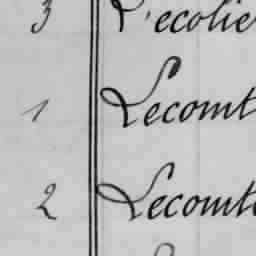 3 L'ecolie
1 Lecomt
2 Lecomte